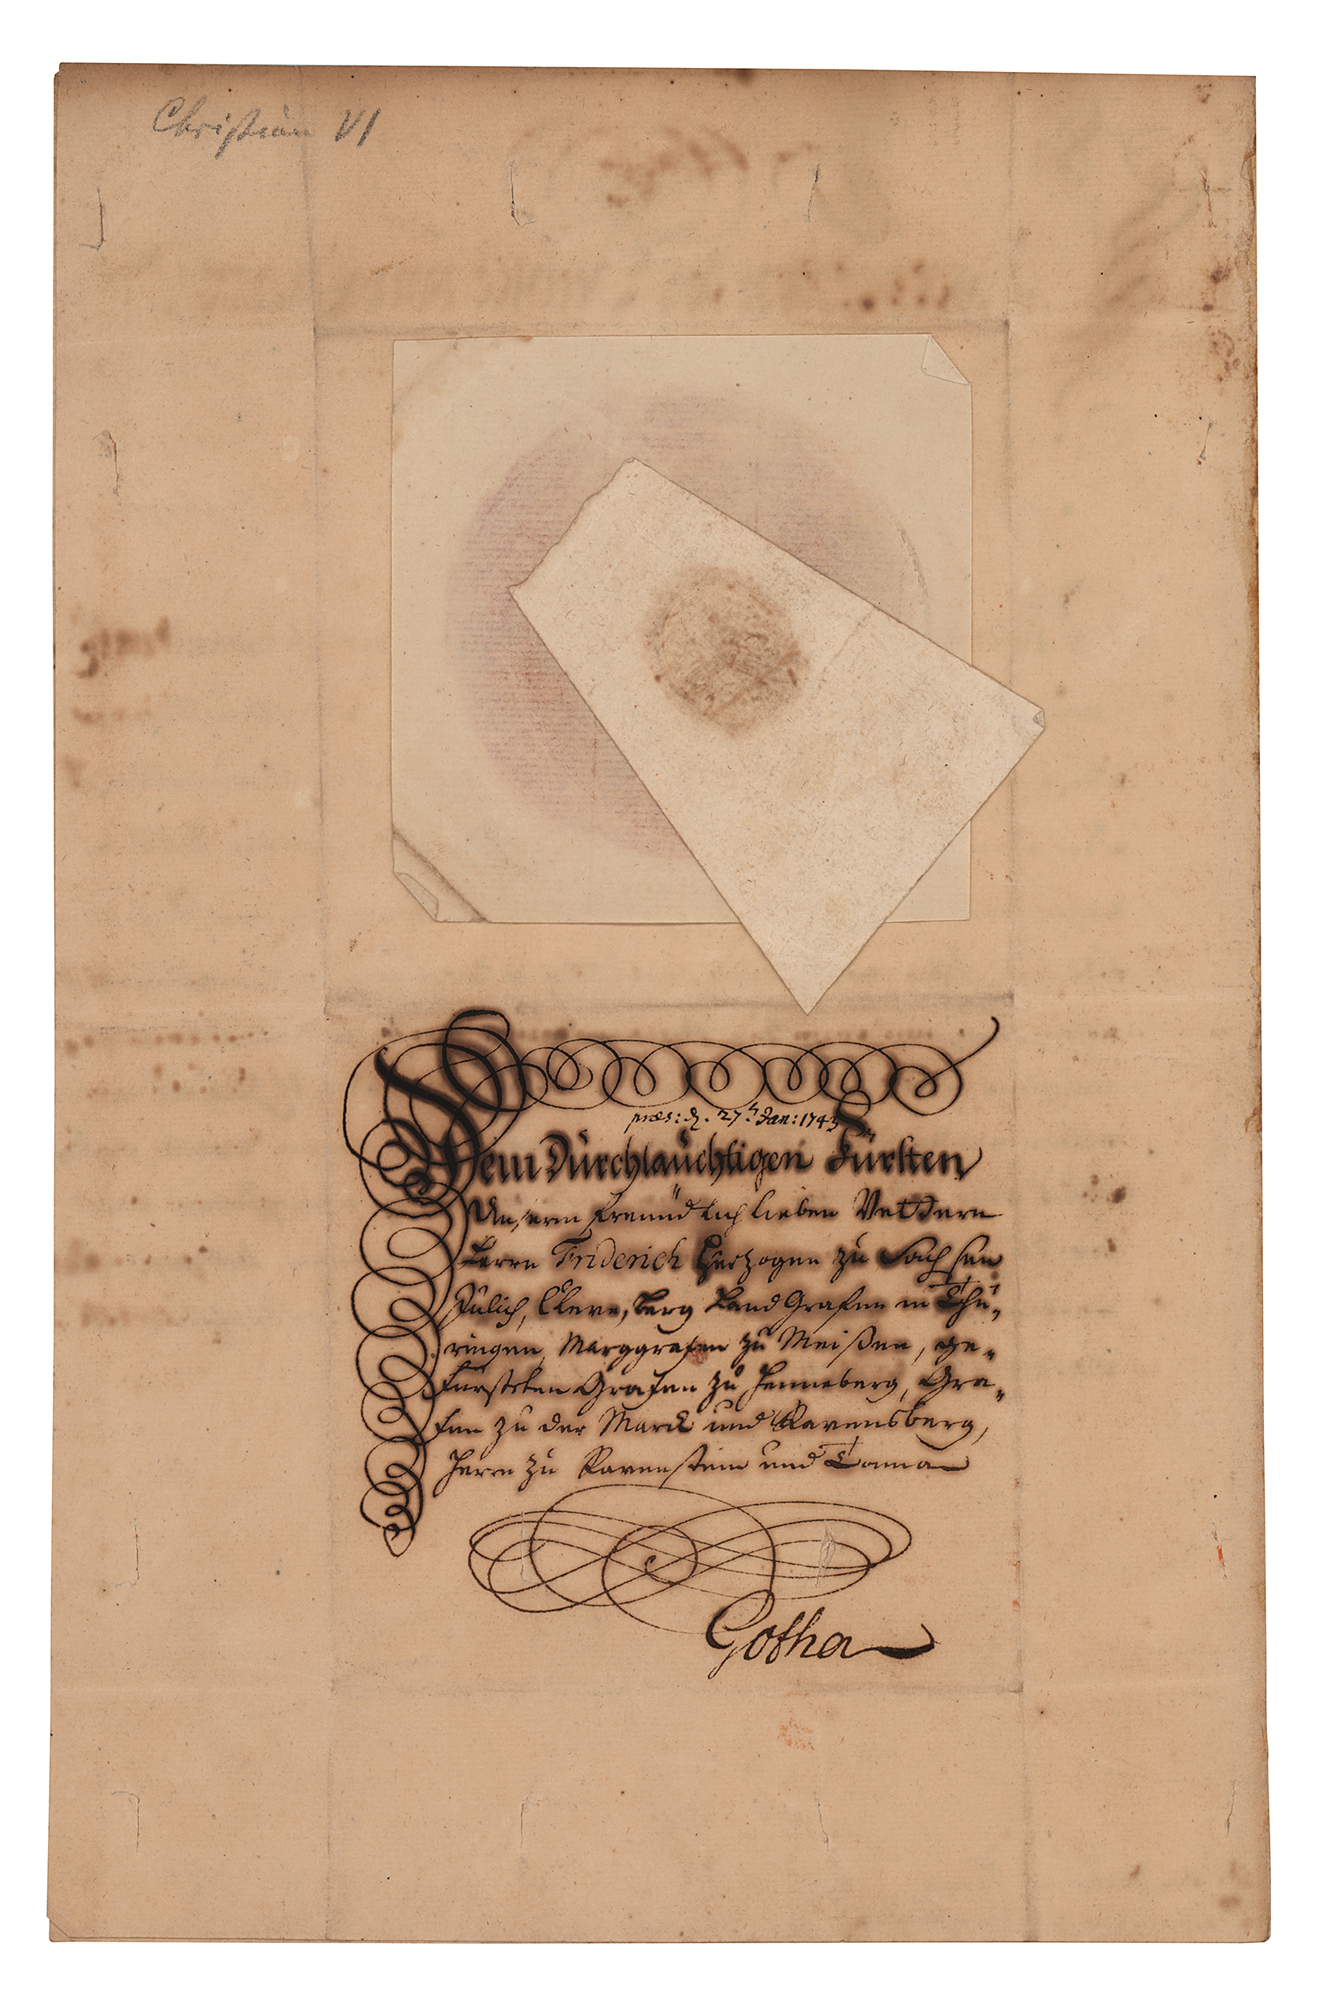 Christian VI
præs: d. 27t Jan: 1743
Dem Durchlauchtigen Fürsten
Unserm Freundtlich lieben Vettern
Herrn Friderich Hertzogen zu Sachsen
Jülich, Cleve, Berg Land Grafen in Thü-
ringen, Marggrafen zu Meißen, ge-
fürsteten Grafen zu Henneberg, Gra-
fen zu der Marck und Ravensberg,
Herrn zu Ravenstein und Tonna
Gotha